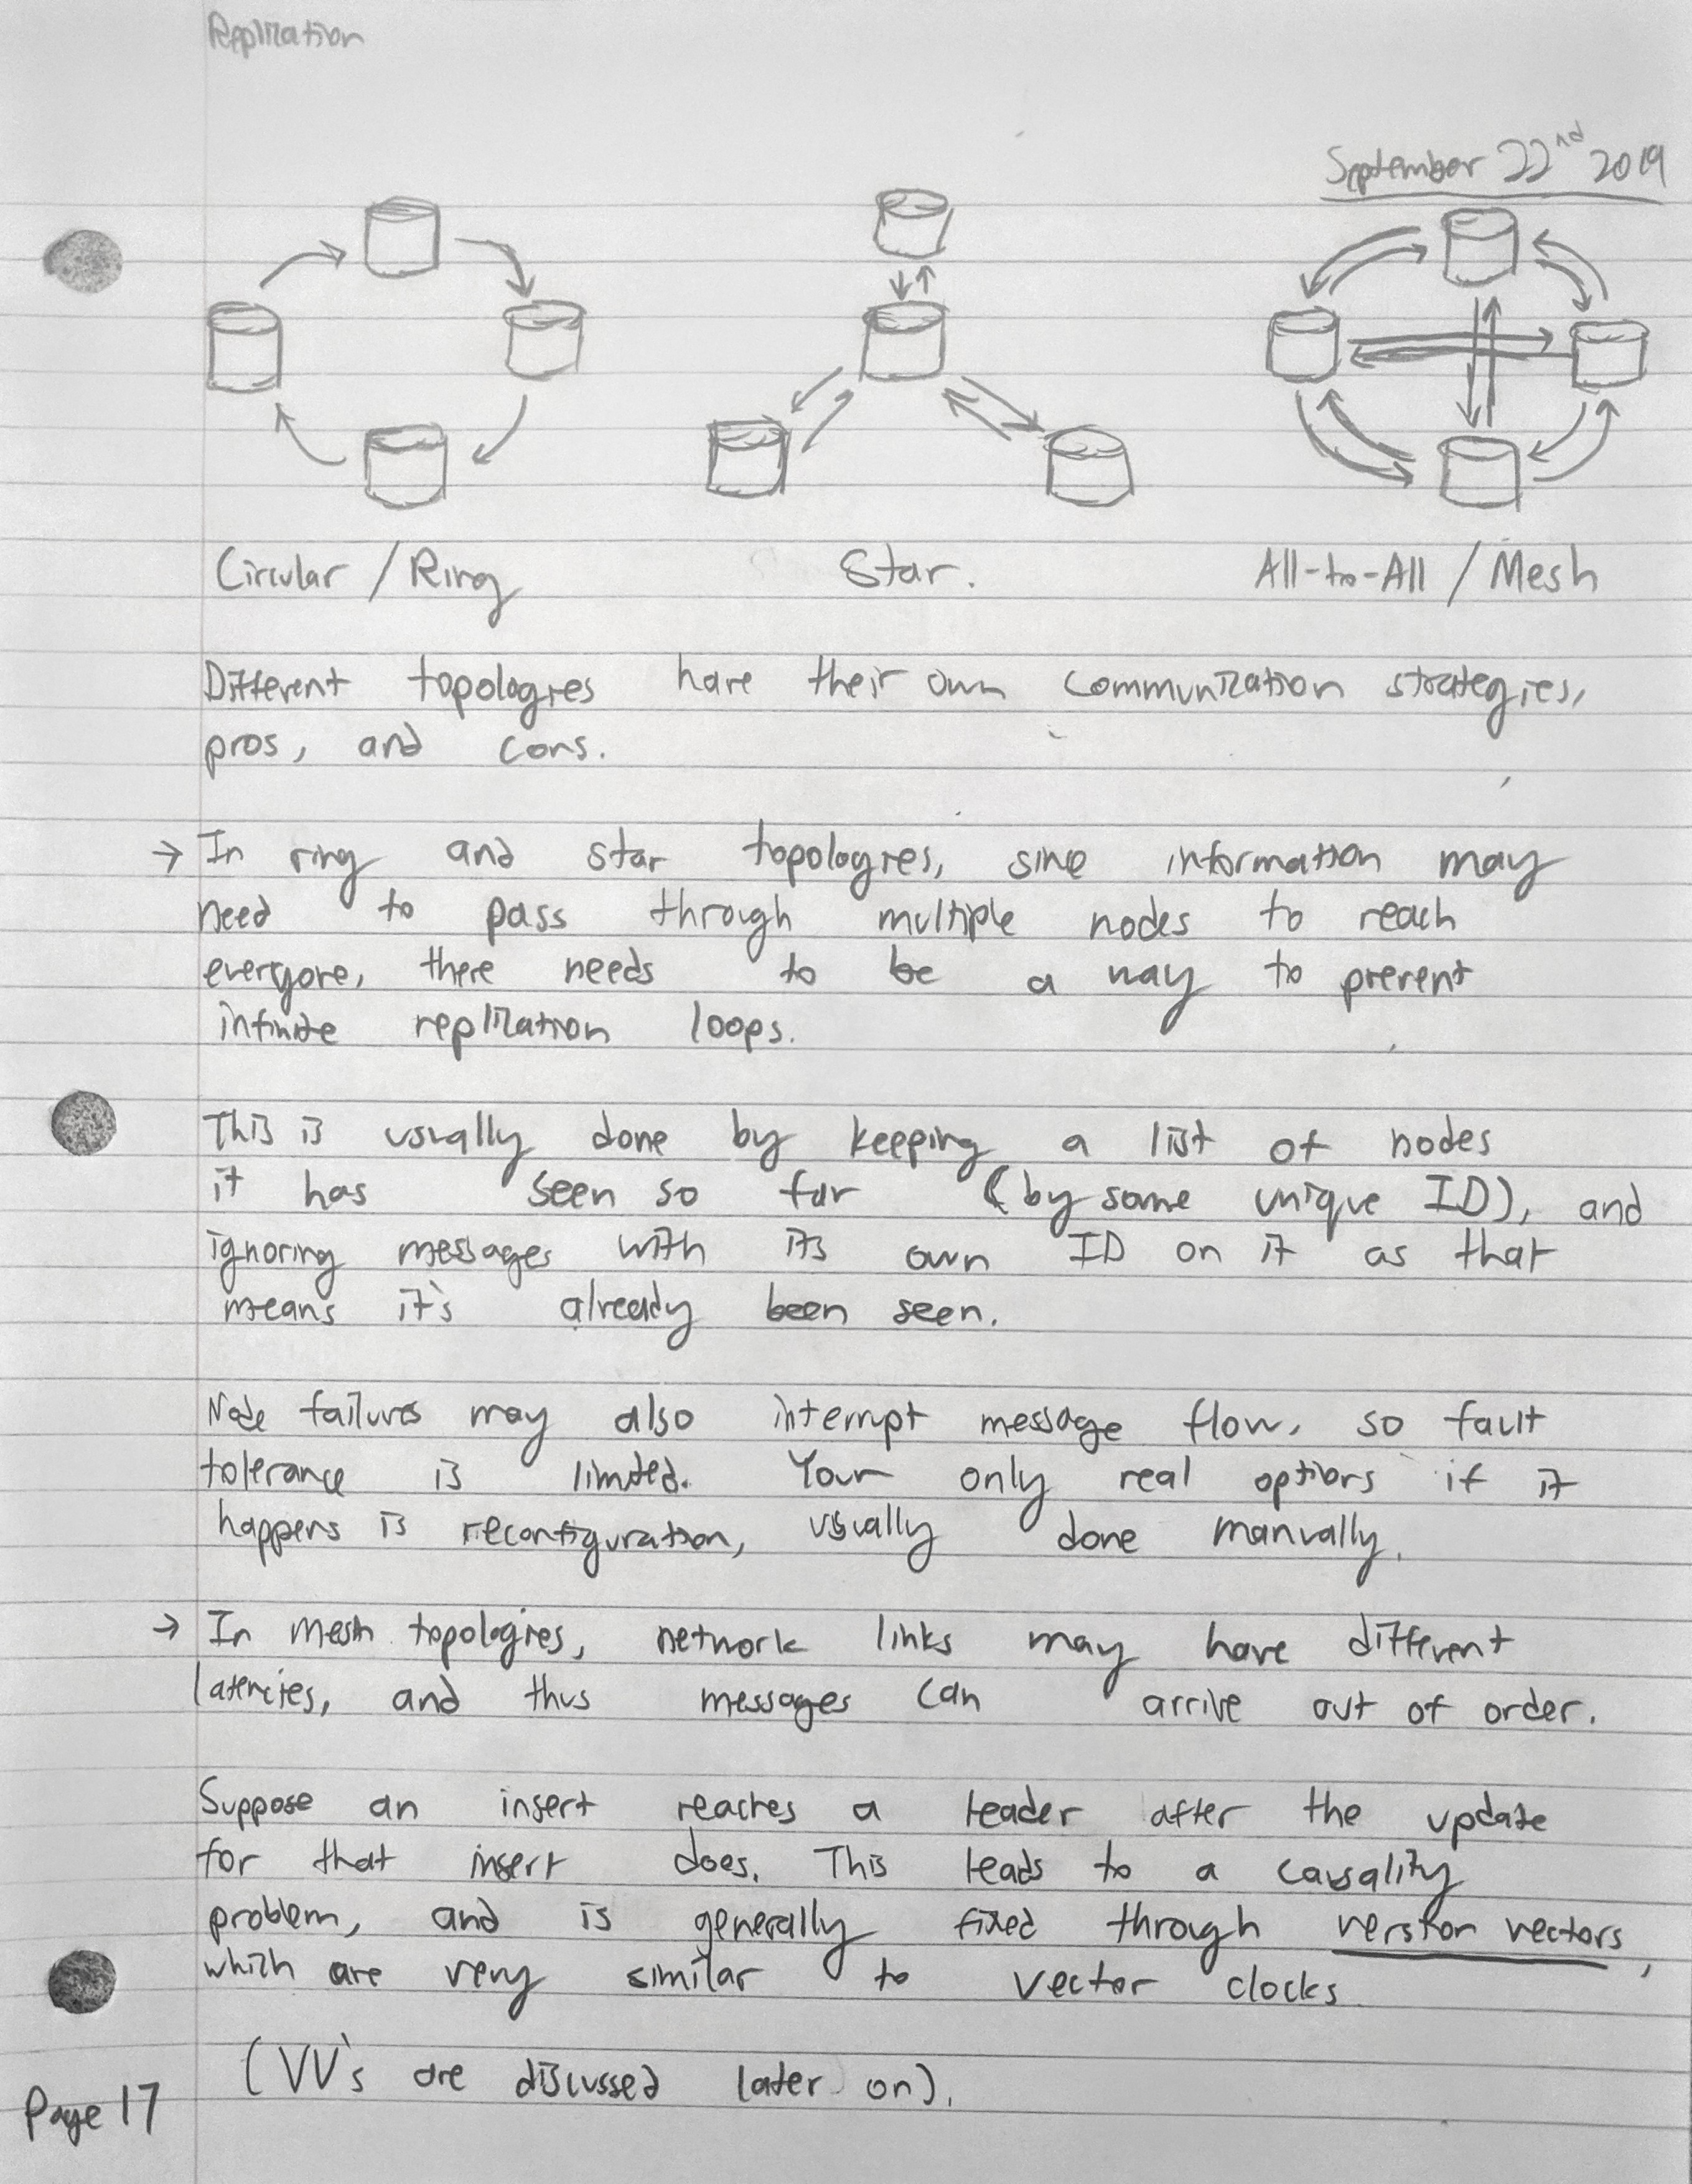 Replication
September 22nd 2019
Circular / Ring
Star.
All-to-All / Mesh
Different topologies have their own communication strategies,
pros, and cons.
→ In ring and star topologies, since information may
need to pass through multiple nodes to reach
everyone, there needs to be a way to prevent
infinite replication loops.
This is usually done by keeping a list of nodes
it has seen so far (by some unique ID), and
ignoring messages with its own ID on it as that
means it's already been seen.
Node failures may also interrupt message flow, so fault
tolerance is limited. Your only real options if it
happens is reconfiguration, usually done manually.
→ In mesh topologies, network links may have different
latencies, and thus messages can arrive out of order.
Suppose an insert reaches a leader after the update
for that insert does. This leads to a causality
problem, and is generally fixed through version vectors,
which are very similar to vector clocks
(VV's are discussed later on).
Page 17